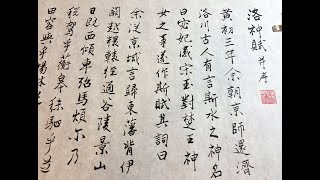 洛神賦 并序
黃初三年余朝京師還濟
洛川古人有言斯水之神名
曰宓妃感宋玉對楚王神
女之事遂作斯賦其詞曰
余從京城言歸東藩背伊
闕越轘轅經通谷陵景山
日既西傾車殆馬煩爾乃
稅駕乎蘅皋秣駟乎芝
田容與乎楊林